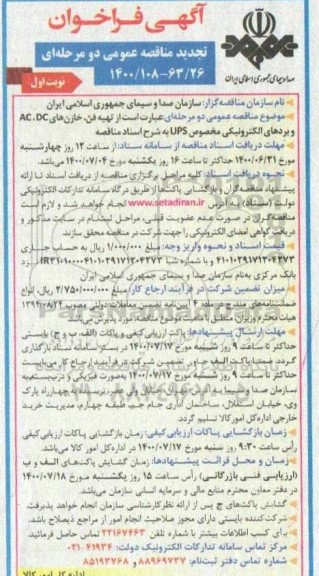 آگهی فراخوان
تجدید مناقصه عمومی دو مرحله‌ای
۱۴۰۰/۱۰۸-۶۳/۲۶
نوبت اول
صدا و سیمای جمهوری اسلامی ایران
نام سازمان مناقصه‌گزار: سازمان صدا و سیمای جمهوری اسلامی ایران
موضوع مناقصه عمومی دو مرحله‌ای عبارت است از تهیه فن، خازن‌های AC، DC
و بردهای الکترونیکی مخصوص UPS به شرح اسناد مناقصه
مهلت دریافت اسناد مناقصه از سامانه ستاد: از ساعت ۱۲ روز چهارشنبه
مورخ ۱۴۰۰/۰۶/۳۱ حداکثر تا ساعت ۱۶ روز یکشنبه مورخ ۱۴۰۰/۰۷/۰۴ می‌باشد.
نحوه دریافت اسناد: کلیه مراحل برگزاری مناقصه از دریافت اسناد تا ارائه
پیشنهاد مناقصه‌گران و بازگشایی پاکت‌ها از طریق درگاه سامانه تدارکات الکترونیکی
دولت (ستاد) به آدرس www.setadiran.ir انجام خواهد شد و لازم است
مناقصه‌گران در صورت عدم عضویت قبلی، مراحل ثبت‌نام در سایت مذکور و
دریافت گواهی امضای الکترونیکی را جهت شرکت در مناقصه محقق سازند
قیمت اسناد و نحوه واریز وجه: مبلغ ۱/۰۰۰/۰۰۰ ریال به حساب جاری
بانک مرکزی به‌نام سازمان صدا و سیمای جمهوری اسلامی ایران
میزان تضمین شرکت در فرآیند ارجاع کار: مبلغ ۲/۷۵۰/۰۰۰/۰۰۰ ریال، انواع
ضمانتنامه‌های مندرج در ماده ۴ آیین‌نامه تضمین معاملات دولتی مصوب ۱۳۹۴/۰۸/۲۲
هیات محترم وزیران منطبق با ماهیت موضوع مناقصه مورد پذیرش می‌باشد.
مهلت ارسال پیشنهادها: پاکت ارزیابی کیفی و پاکات (الف، ب و ج) بایستی
حداکثر تا ساعت ۹ روز شنبه مورخ ۱۴۰۰/۰۷/۱۷ در بستر سامانه ستاد بارگذاری
گردد. ضمنا پاکت الف حاوی تضمین شرکت در فرآیند ارجاع کار می‌بایست
حداکثر تا ساعت ۹ روز شنبه مورخ ۱۴۰۰/۰۷/۱۷ به‌صورت فیزیکی و
سازمان صدا و سیما به آدرس تهران، خیابان ولی عصر، نرسیده به چهارراه پارک
وی، خیابان استقلال، ساختمان اداری جام جم، طبقه چهارم، مدیریت خرید
خارجی اداره‌کل امور کالا، تسلیم گردد.
زمان بازگشایی پاکات ارزیابی کیفی: زمان بازگشایی پاکات ارزیابی کیفی
راس ساعت ۹:۳۰ روز شنبه مورخ ۱۴۰۰/۰۷/۱۷ در اداره‌کل امور کالا می‌باشد.
زمان و محل قرائت پیشنهادها: زمان گشایش پاکت‌های الف و ب
(ارزیابی فنی بازرگانی) راس ساعت ۱۵ روز یکشنبه مورخ ۱۴۰۰/۰۷/۱۸
در دفتر معاون محترم منابع مالی و سرمایه انسانی سازمان می‌باشد.
گشایش پاکت‌های ج پس از ارائه نظر کارشناسی سازمان انجام خواهد پذیرفت.
شرکت‌کننده بایستی دارای مجوز صلاحیت انجام امور از مراجع ذیصلاح باشد.
برای کسب اطلاعات بیشتر با شماره تلفن ۲۲۱۶۷۴۶۳ تماس حاصل فرمائید.
مرکز تماس سامانه تدارکات الکترونیک دولت: ۴۱۹۳۴-۰۲۱
شماره تماس دفتر ثبت‌نام: ۸۸۹۶۹۷۳۷ و ۸۵۱۹۳۷۶۸